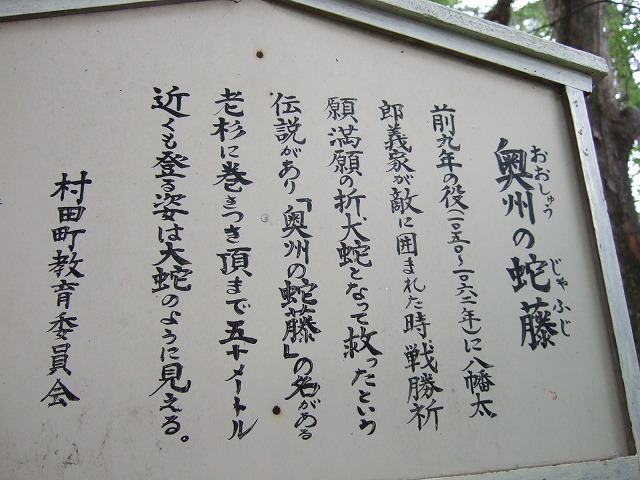 奥州の蛇藤
おおしゅう じゃふじ
前九年の役(一〇五〇〜一〇六二年)に八幡太
郎義家が敵に囲まれた時、戦勝祈
願満願の折、大蛇となって救ったという
伝説があり『奥州の蛇藤』の名がある
老杉に巻きつき頂まで五十メートル
近くも登る姿は大蛇のように見える。
村田町教育委員会